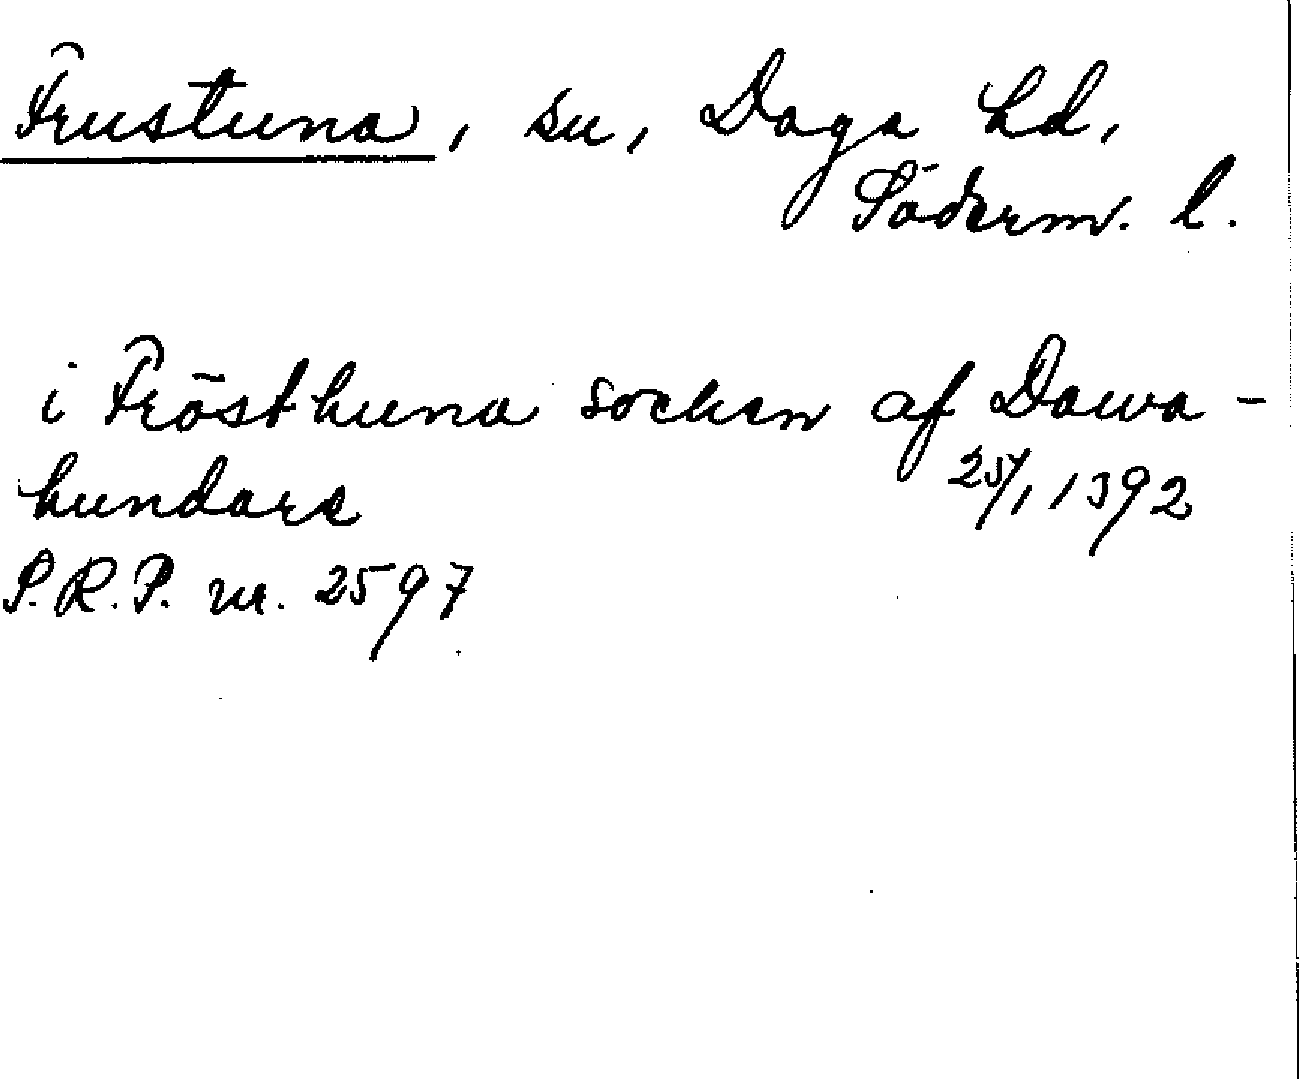 Frustuna, sn, Daga hd,
Söderm. l.
i Frösthuna socken af Dawa-
hundare 25/1 1392
S.R.P. nr. 2597